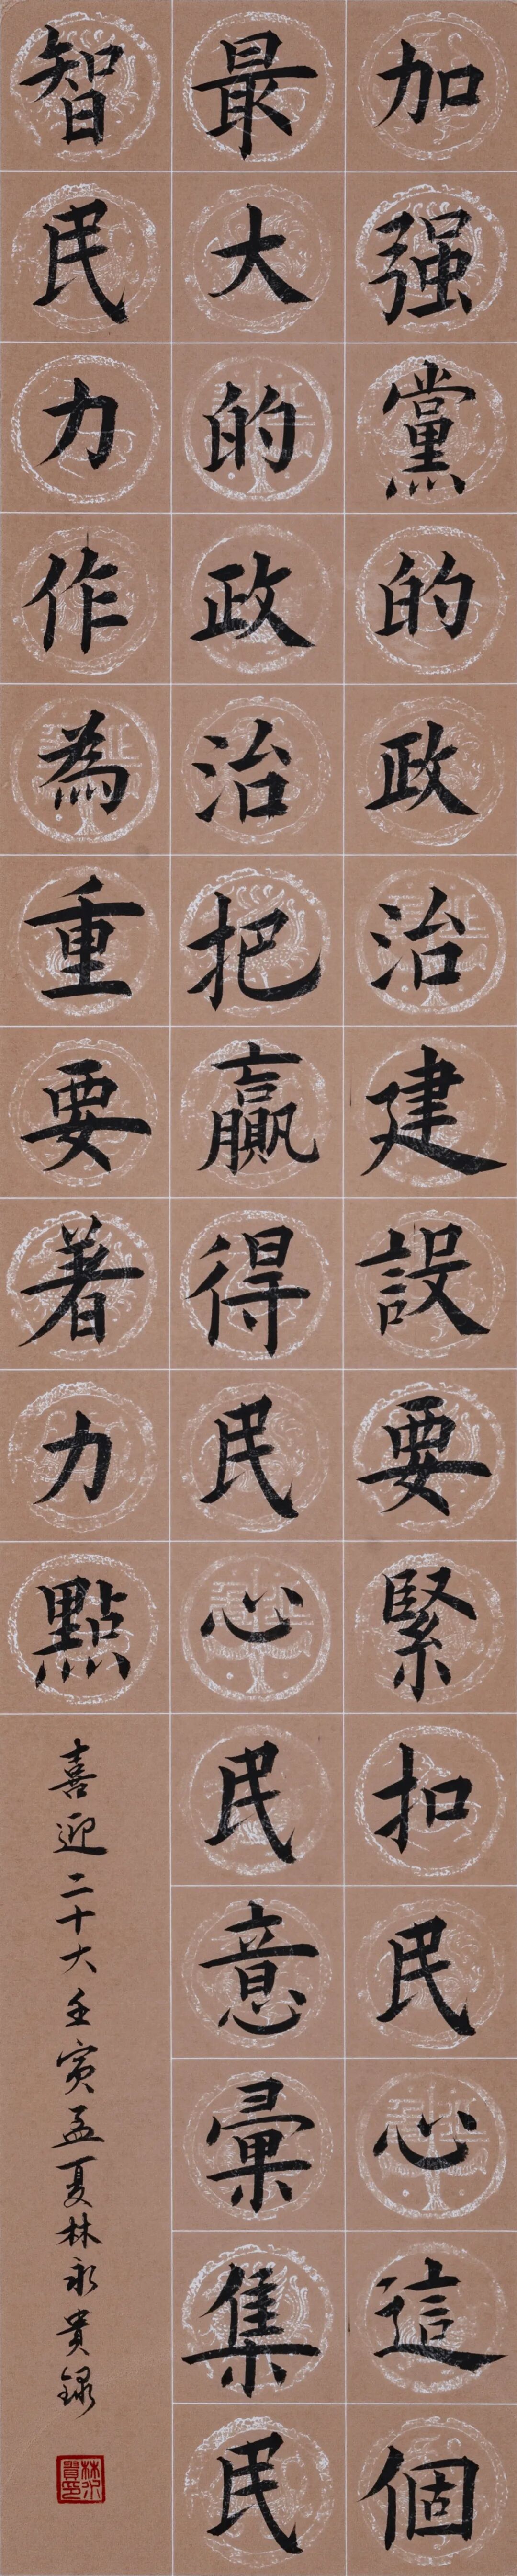 加强黨的政治建設要緊扣民心這個
最大的政治把贏得民心民意彙集民
智民力作為重要著力點
喜迎二十大壬寅孟夏林永貴錄
林永貴印